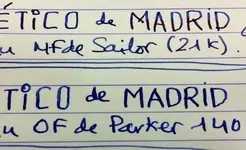 ÉTICO de MADRID
u Mf de Sailor (21K).
TICO de MADRID
u OF de Parker 140